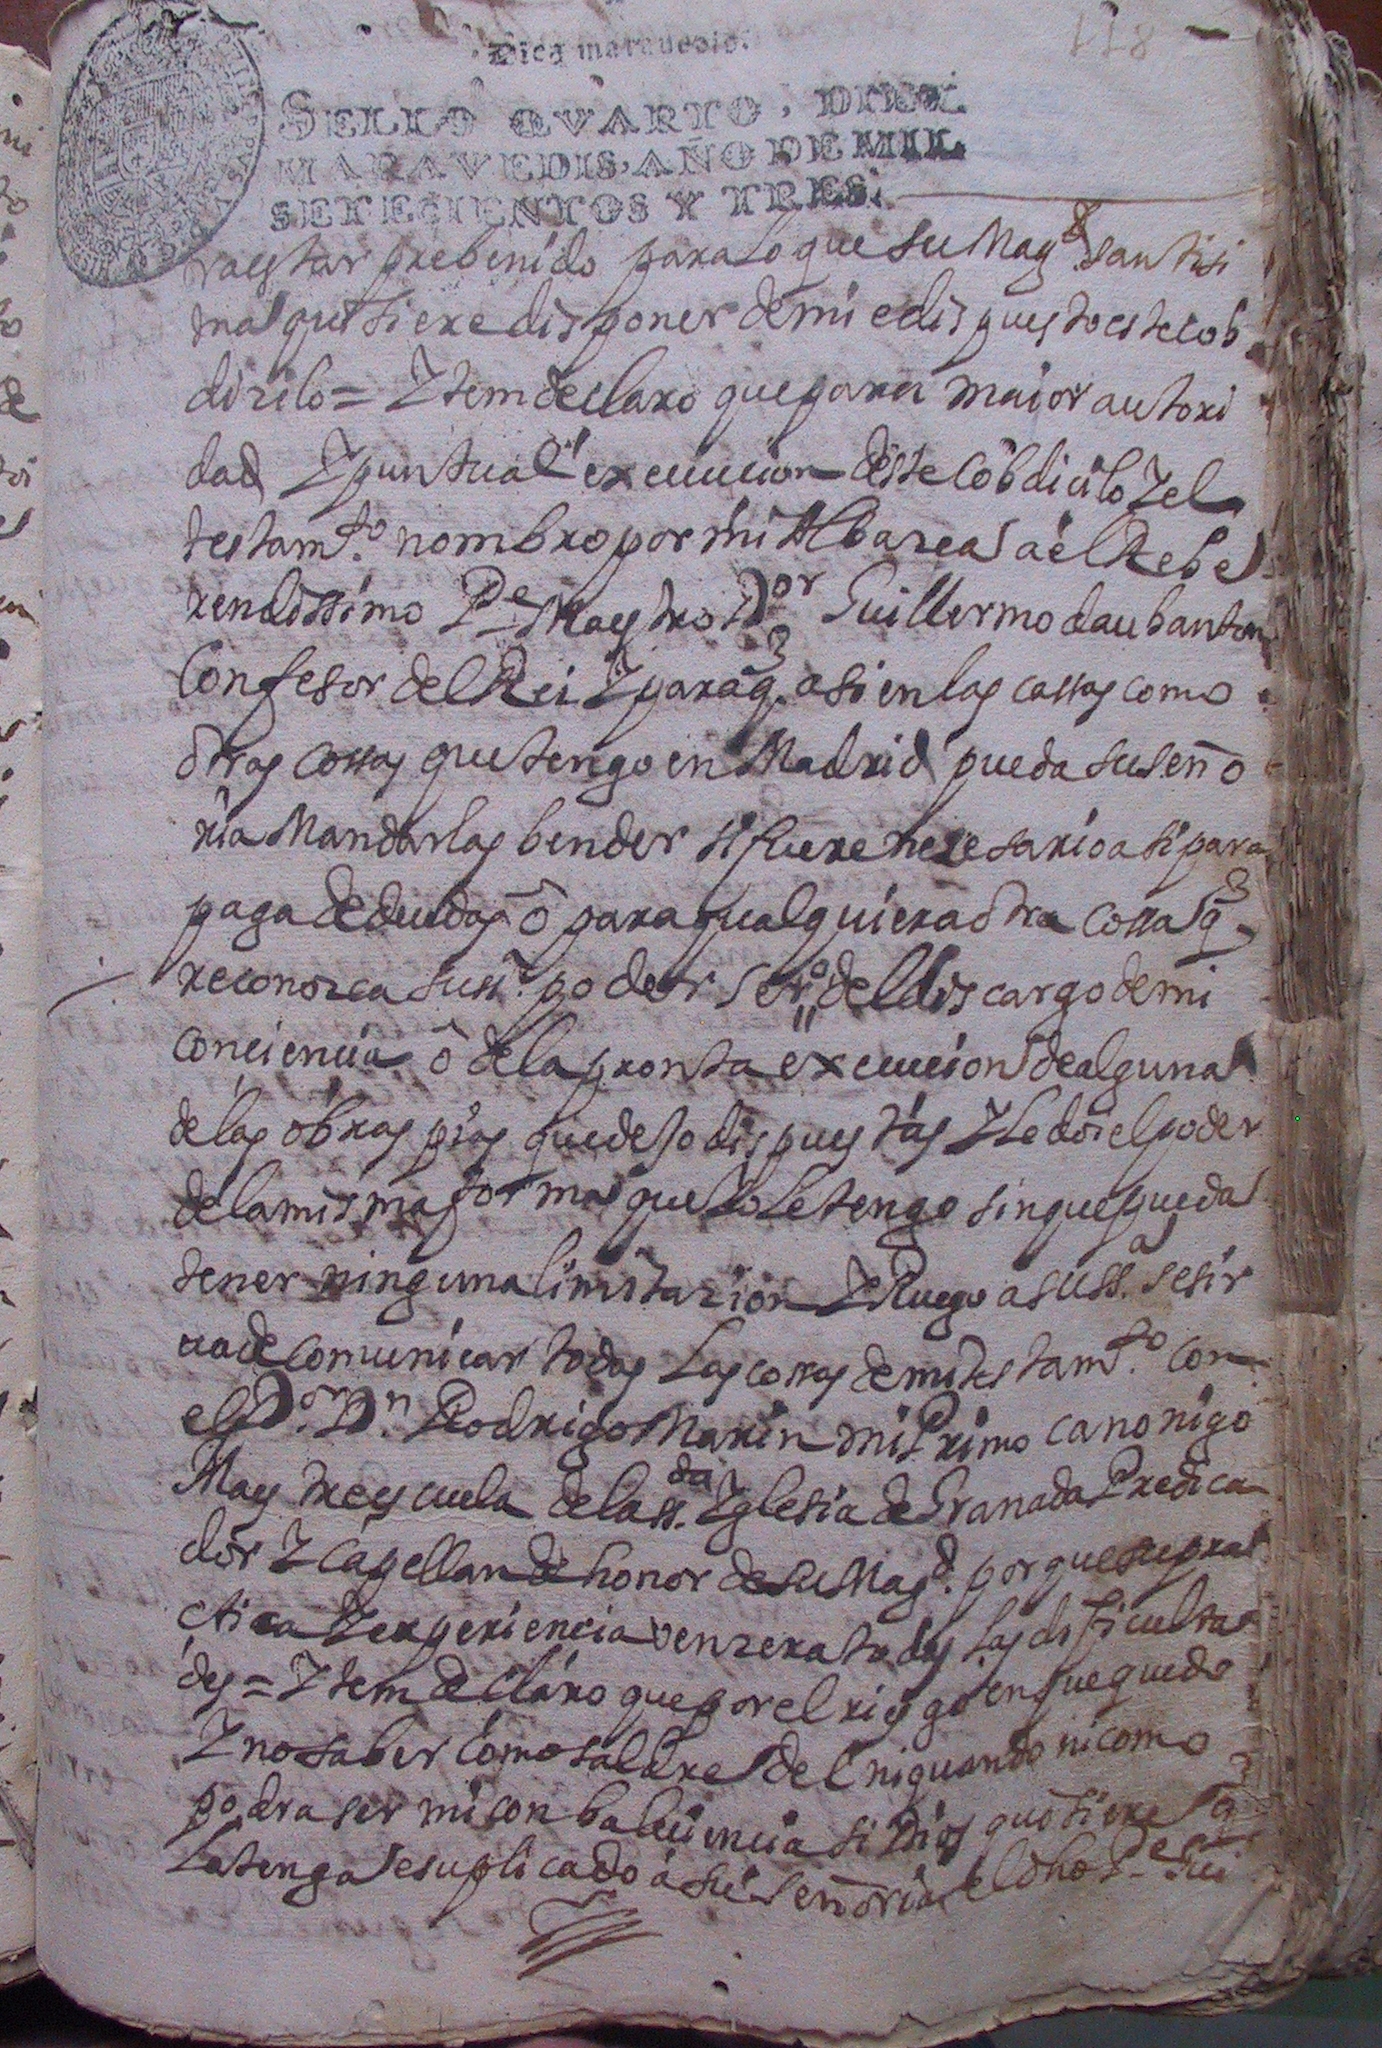 118
Diez maravedis.
SELLO QVARTO, DIEZ
MARAVEDIS, AÑO DE MIL
SETECIENTOS Y TRES.
ra estar prebenido para lo que su Mag.d santisi
ma quisiere disponer de mi e dispuesto este cob
dizilo = Ytem declaro que para maior autori
dad Y puntual execucion deste Cobdicilo Y el
testam.to nombro por mi Albazea a el Rebe
rendissimo P.e Maestro D.or Guillermo daubanton
Confesor del Rei Y para q. asi en las cassas como
otras cossas que tengo en Madrid pueda su seño
ria Mandarlas bender si fuere nesesario asi para
paga de deudas ô para qualquiera otra cossa q
reconozca su ss.a poder ser del discargo de mi
conciencia ô de la pronta execucion de alguna
de las obras pias que dejo dispuestas Y le doi el poder
de la misma forma que Yo le tengo sin que pueda
tener ninguna limitazion Y Ruego a su ss.a se sir
ua de comunicar todas las cossas de mi testam.to con
el D.or D.n Rodrigo Marin mi Primo canonigo
Maestre escuela de la ss.da Yglesia de Granada Predica
dor Y Capellan de honor de su Mag.d porque su pra
ctica Y experiencia venzera todas las dificulta
des = Ytem declaro que por el riesgo en que quedo
Y no saber como saldre del ni quando ni como
podra ser mi conbalecencia si Dios quisiere q
la tenga e suplicado a su señoria el dho P.e Gui